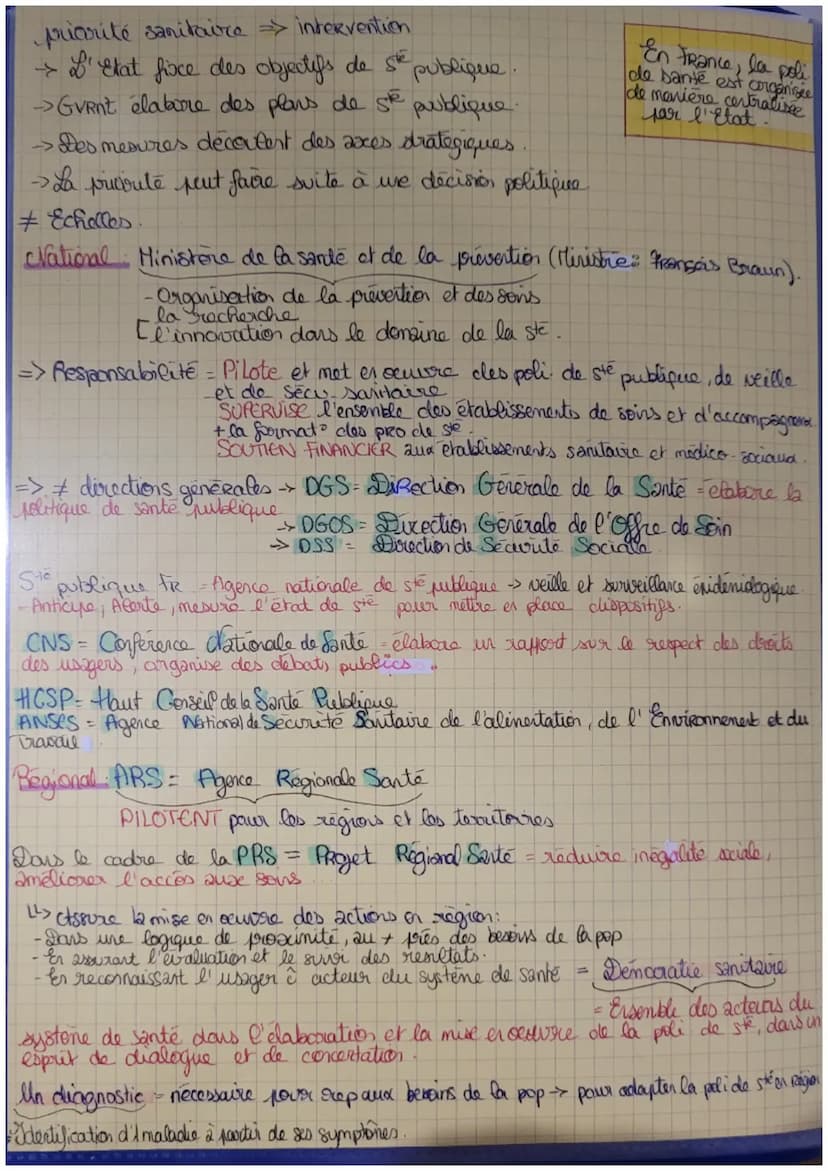 priorité sanitaire => intervention
-> L'Etat fixe des objectifs de sté publique.
-> GVRNT élabore des plans de sté publique.
-> Des mesures découlent des axes stratégiques.
-> La priorité peut faire suite à une décision politique
En France, la poli
de santé est organisée
de manière centralisée
par l'Etat.
≠ Echelles.
National : Ministère de la santé et de la prévention (Ministre : François Braun).
- Organisation de la prévention et des soins
la recherche
[ l'innovation dans le domaine de la sté.
=> Responsabilité = Pilote et met en oeuvre des poli de sté publique, de veille
et de sécu-sanitaire
SUPERVISE l'ensemble des établissements de soins et d'accompagnem
+ la format° des pro de sté
SOUTIEN FINANCIER aux établissements sanitaire et médico-sociaux.
=> ≠ directions générales -> DGS = Direction Générale de la Santé = élabore la
politique de santé publique
-> DGOS = Direction Générale de l'Offre de Soin
-> DSS = Direction de Sécurité Sociale
Sté publique FR = Agence nationale de sté publique -> veille et surveillance épidémiologique
- Anticipe, Alerte, mesure l'état de sté pour mettre en place dispositifs.
CNS = Conférence Nationale de Santé = élabore un rapport sur le respect des droits
des usagers, organise des débats publics.
HCSP = Haut Conseil de la Santé Publique
ANSES = Agence National de Sécurité Sanitaire de l'alimentation, de l'Environnement et du
Travail
Régional : ARS = Agence Régionale Santé
PILOTENT pour les régions et les territoires
Dans le cadre de la PRS = Projet Régional Santé = réduire inégalité sociale,
améliorer l'accès aux soins
↳> Assure la mise en oeuvre des actions en région:
- Dans une logique de proximité, au + près des besoins de la pop
- En assurant l'évaluation et le suivi des résultats.
- En reconnaissant l'usager ĉ acteur du système de santé = Démocratie sanitaire
= Ensemble des acteurs du
système de santé dans l'élaboration et la mise en oeuvre de la poli de sté, dans un
esprit de dialogue et de concertation.
Un diagnostic = nécessaire pour rep aux besoins de la pop -> pour adapter la poli de sté en région
= Identification d'1 maladie à partir de ses symptômes.